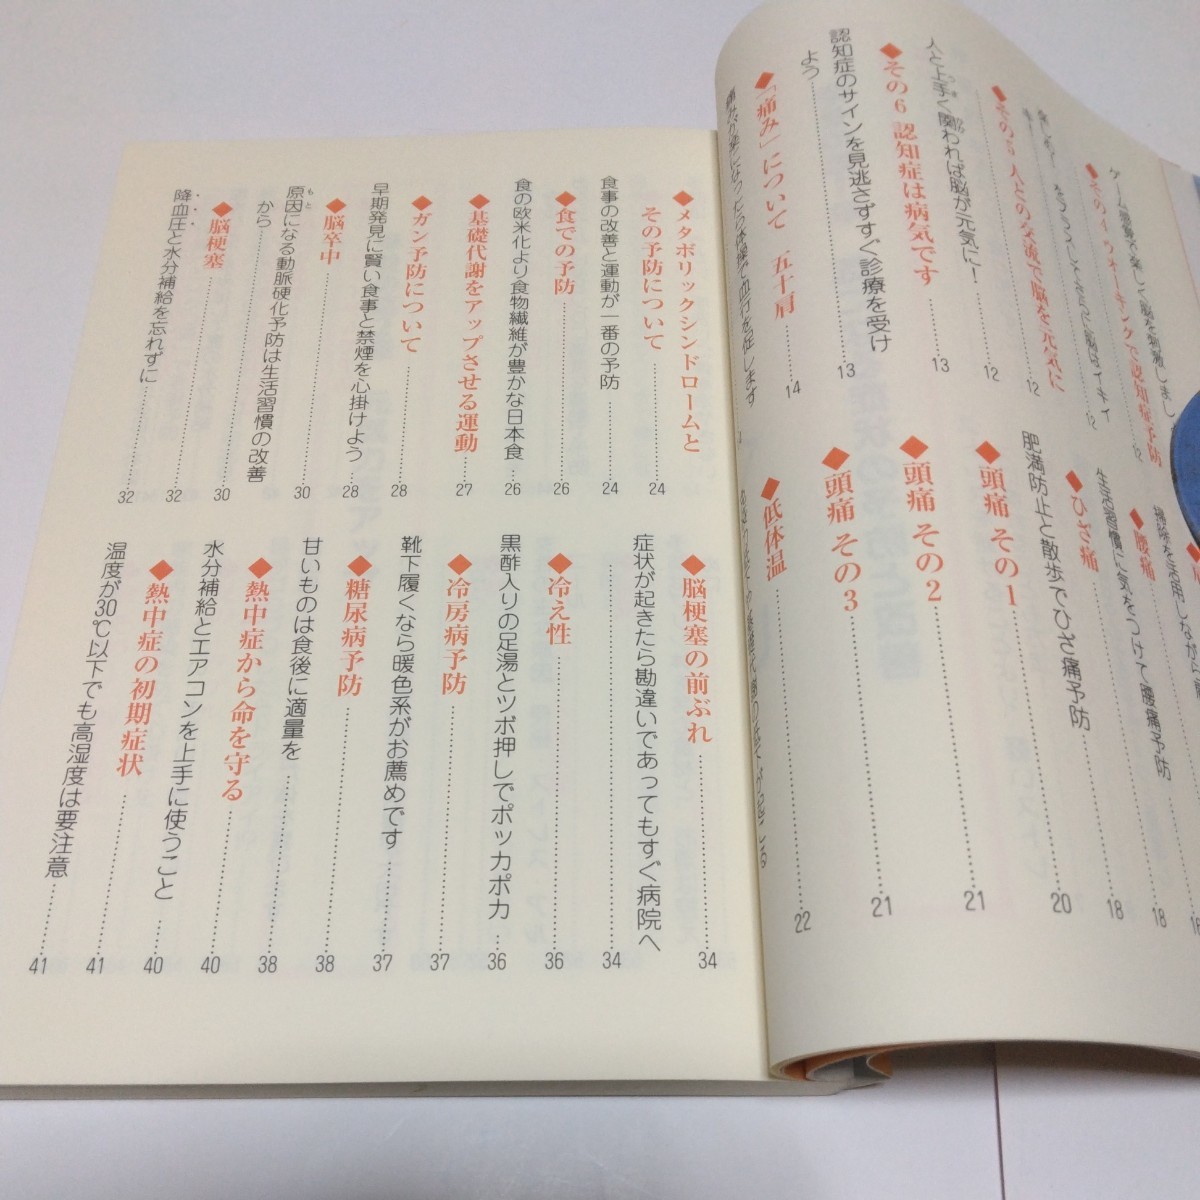 ◆そのイツォーキングで認知症予防
12
12
◆その5 人との交流で脳を元気に
12
人と上手く関われば脳が元気に！
12
◆その6 認知症は病気です
13
認知症のサインを見逃さずすぐ診療を受け
よう
13
◆「痛み」について 五十肩
14
◆腰痛
18
生活習慣に気をつけて腰痛予防
18
◆ひざ痛
20
肥満防止と散歩でひざ痛予防
◆頭痛 その1
21
◆頭痛 その2
21
◆頭痛 その3
22
◆低体温
◆メタボリックシンドロームと
その予防について
24
食事の改善と運動が一番の予防
24
◆食での予防
26
食の欧米化より食物繊維が豊かな日本食
26
◆基礎代謝をアップさせる運動
27
◆ガン予防について
28
早期発見に賢い食事と禁煙を心掛けよう
28
◆脳卒中
30
原因になる動脈硬化予防は生活習慣の改善
から
30
◆脳梗塞
32
降血圧と水分補給を忘れずに
32
◆脳梗塞の前ぶれ
34
症状が起きたら勘違いであってもすぐ病院へ
34
◆冷え性
36
黒酢入りの足湯とツボ押しでポッカポカ
36
◆冷房病予防
37
靴下履くなら暖色系がお薦めです
37
◆糖尿病予防
38
甘いものは食後に適量を
38
◆熱中症から命を守る
40
水分補給とエアコンを上手に使うこと
40
◆熱中症の初期症状
41
温度が30℃以下でも高湿度は要注意
41